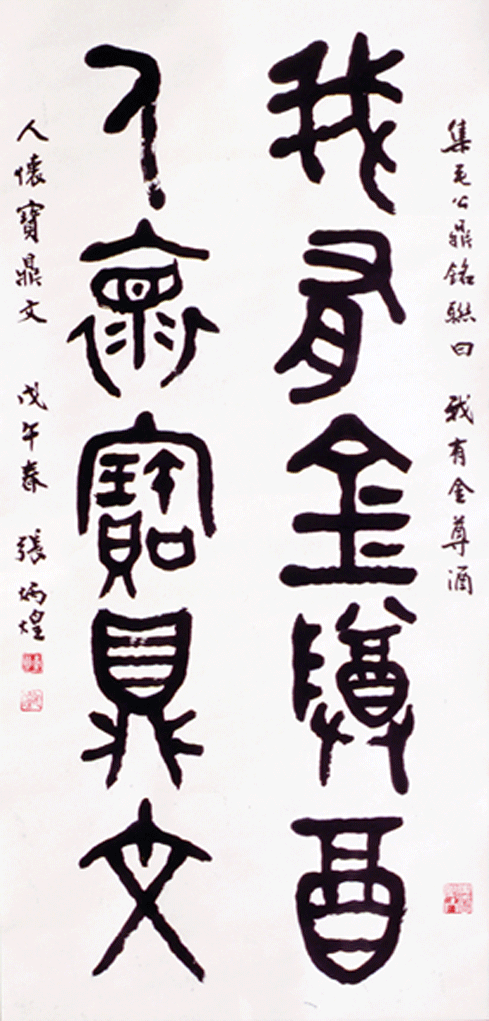 集毛公鼎銘聯曰　我有金尊酒
我有金䔿酉
人懷寶鼎文
人懷寶鼎文　戊午春　張炳煌